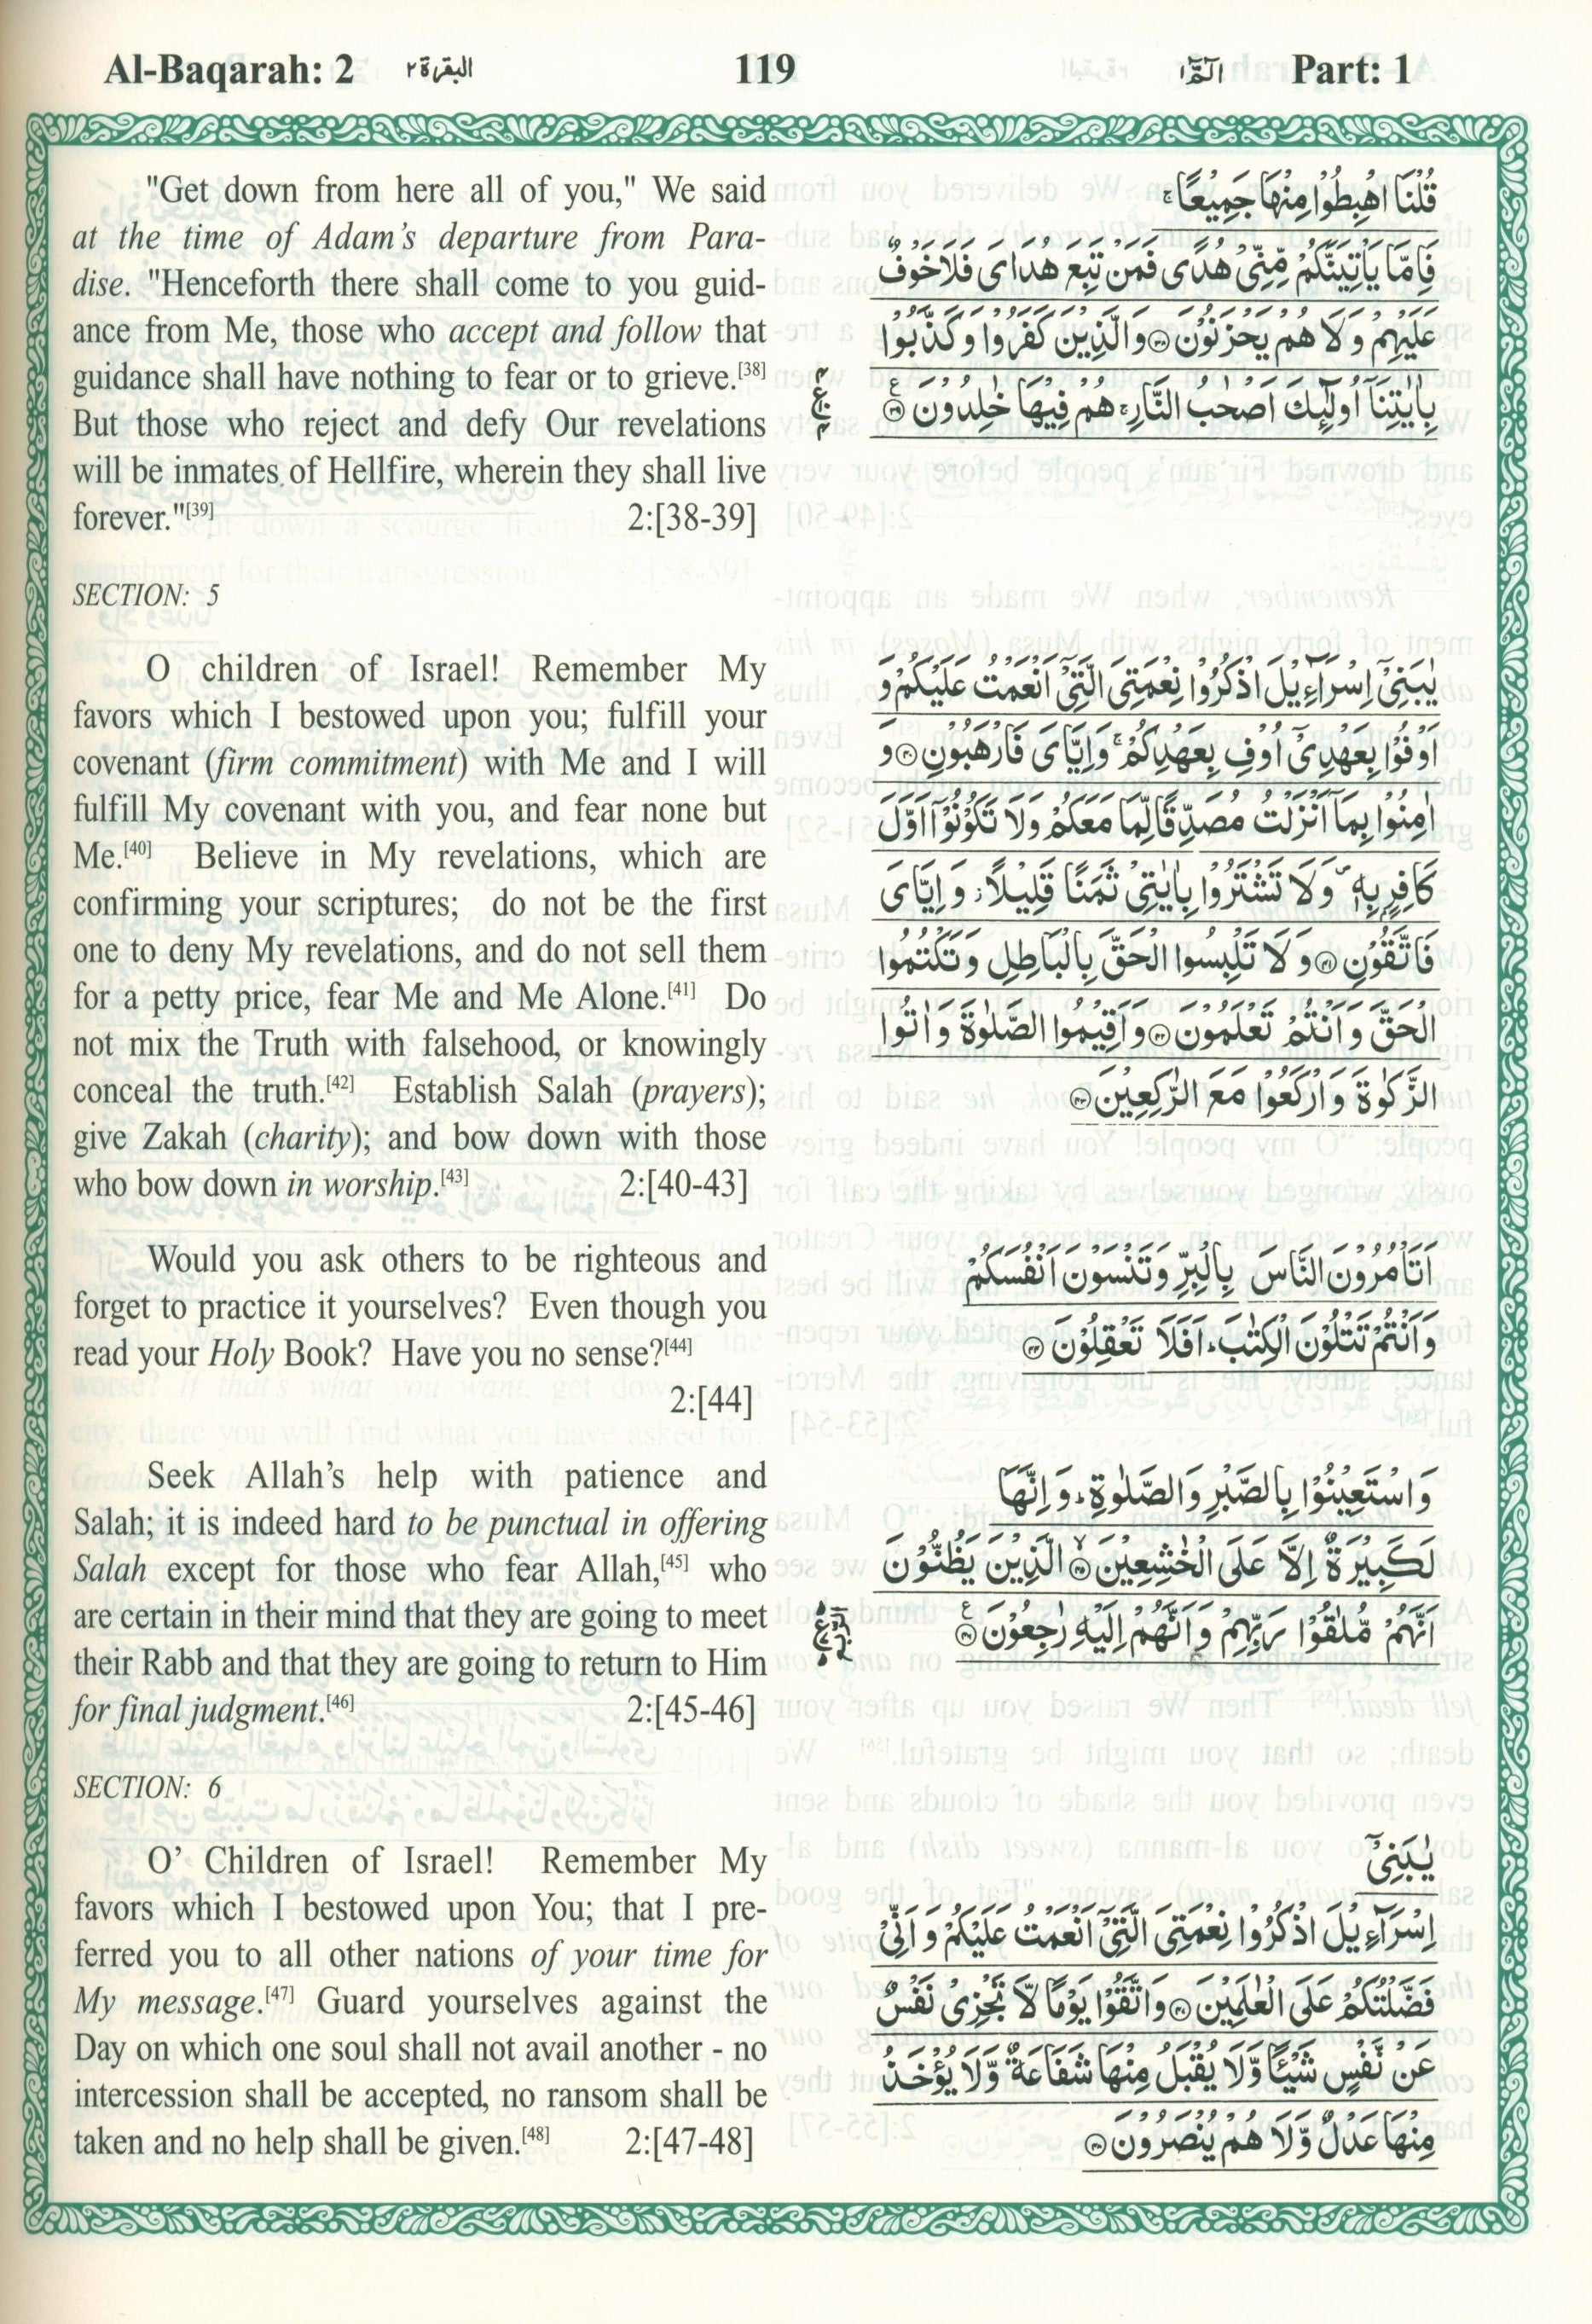 Al-Baqarah: 2 البقرة ٢ 119 الٓمّٓ ١ Part: 1
"Get down from here all of you," We said
at the time of Adam’s departure from Para-
dise. "Henceforth there shall come to you guid-
ance from Me, those who accept and follow that
guidance shall have nothing to fear or to grieve.[38]
But those who reject and defy Our revelations
will be inmates of Hellfire, wherein they shall live
forever."[39] 2:[38-39]
قُلْنَا اهْبِطُوْا مِنْهَا جَمِيْعًا ۚ
فَاِمَّا يَاْتِيَنَّكُمْ مِّنِّىْ هُدًى فَمَنْ تَبِعَ هُدَاىَ فَلَا خَوْفٌ
عَلَيْهِمْ وَلَا هُمْ يَحْزَنُوْنَ ۝٣٨ وَالَّذِيْنَ كَفَرُوْا وَكَذَّبُوْا
بِاٰيٰتِنَآ اُولٰٓئِكَ اَصْحٰبُ النَّارِ ۚ هُمْ فِيْهَا خٰلِدُوْنَ ۝٣٩
SECTION: 5
O children of Israel! Remember My
favors which I bestowed upon you; fulfill your
covenant (firm commitment) with Me and I will
fulfill My covenant with you, and fear none but
Me.[40] Believe in My revelations, which are
confirming your scriptures; do not be the first
one to deny My revelations, and do not sell them
for a petty price, fear Me and Me Alone.[41] Do
not mix the Truth with falsehood, or knowingly
conceal the truth.[42] Establish Salah (prayers);
give Zakah (charity); and bow down with those
who bow down in worship.[43] 2:[40-43]
يٰبَنِىْٓ اِسْرَآءِيْلَ اذْكُرُوْا نِعْمَتِىَ الَّتِىْٓ اَنْعَمْتُ عَلَيْكُمْ وَ
اَوْفُوْا بِعَهْدِىْٓ اُوْفِ بِعَهْدِكُمْ ۚ وَاِيَّاىَ فَارْهَبُوْنِ ۝٤٠ وَ
اٰمِنُوْا بِمَآ اَنْزَلْتُ مُصَدِّقًا لِّمَا مَعَكُمْ وَلَا تَكُوْنُوْٓا اَوَّلَ
كَافِرٍۭ بِهٖ ۪ وَلَا تَشْتَرُوْا بِاٰيٰتِىْ ثَمَنًا قَلِيْلًا ؗ وَاِيَّاىَ
فَاتَّقُوْنِ ۝٤١ وَلَا تَلْبِسُوا الْحَقَّ بِالْبَاطِلِ وَتَكْتُمُوا
الْحَقَّ وَاَنْتُمْ تَعْلَمُوْنَ ۝٤٢ وَاَقِيْمُوا الصَّلٰوةَ وَاٰتُوا
الزَّكٰوةَ وَارْكَعُوْا مَعَ الرّٰكِعِيْنَ ۝٤٣
Would you ask others to be righteous and
forget to practice it yourselves? Even though you
read your Holy Book? Have you no sense?[44]
2:[44]
اَتَاْمُرُوْنَ النَّاسَ بِالْبِرِّ وَتَنْسَوْنَ اَنْفُسَكُمْ
وَاَنْتُمْ تَتْلُوْنَ الْكِتٰبَ ؕ اَفَلَا تَعْقِلُوْنَ ۝٤٤
Seek Allah’s help with patience and
Salah; it is indeed hard to be punctual in offering
Salah except for those who fear Allah,[45] who
are certain in their mind that they are going to meet
their Rabb and that they are going to return to Him
for final judgment.[46] 2:[45-46]
وَاسْتَعِيْنُوْا بِالصَّبْرِ وَالصَّلٰوةِ ؕ وَاِنَّهَا
لَكَبِيْرَةٌ اِلَّا عَلَى الْخٰشِعِيْنَ ۝٤٥ الَّذِيْنَ يَظُنُّوْنَ
اَنَّهُمْ مُّلٰقُوْا رَبِّهِمْ وَاَنَّهُمْ اِلَيْهِ رٰجِعُوْنَ ۝٤٦
SECTION: 6
O’ Children of Israel! Remember My
favors which I bestowed upon You; that I pre-
ferred you to all other nations of your time for
My message.[47] Guard yourselves against the
Day on which one soul shall not avail another - no
intercession shall be accepted, no ransom shall be
taken and no help shall be given.[48] 2:[47-48]
يٰبَنِىْٓ
اِسْرَآءِيْلَ اذْكُرُوْا نِعْمَتِىَ الَّتِىْٓ اَنْعَمْتُ عَلَيْكُمْ وَاَنِّىْ
فَضَّلْتُكُمْ عَلَى الْعٰلَمِيْنَ ۝٤٧ وَاتَّقُوْا يَوْمًا لَّا تَجْزِىْ نَفْسٌ
عَنْ نَّفْسٍ شَيْـًٔا وَّلَا يُقْبَلُ مِنْهَا شَفَاعَةٌ وَّلَا يُؤْخَذُ
مِنْهَا عَدْلٌ وَّلَا هُمْ يُنْصَرُوْنَ ۝٤٨